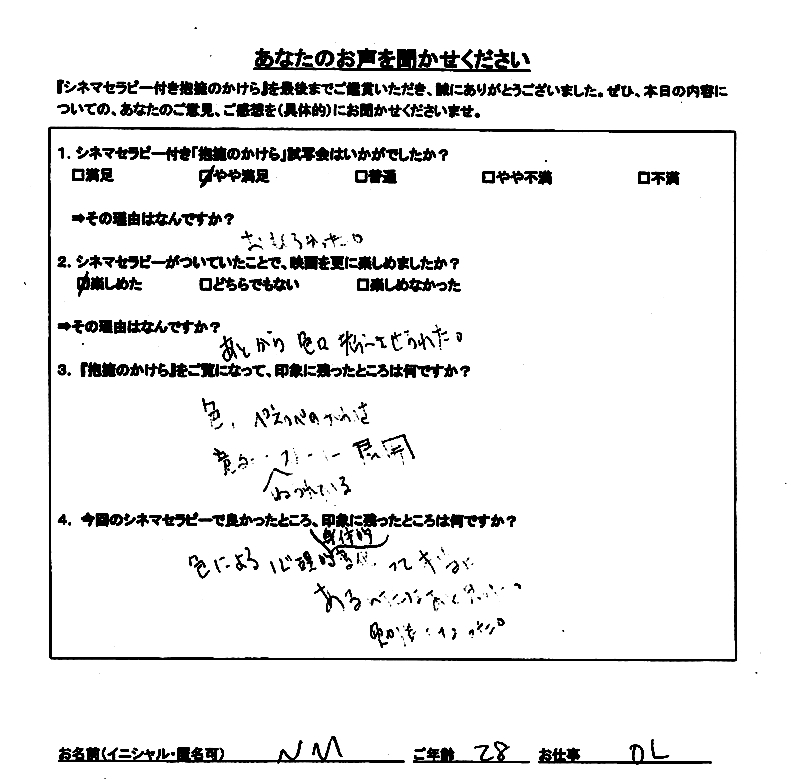 あなたのお声を聞かせください
『シネマセラピー付き抱擁のかけら』を最後までご鑑賞いただき、誠にありがとうございました。ぜひ、本日の内容に
ついての、あなたのご意見、ご感想を（具体的）にお聞かせくださいませ。
1. シネマセラピー付き「抱擁のかけら」試写会はいかがでしたか？
□満足 ☑やや満足 □普通 □やや不満 □不満
⇒その理由はなんですか？
2. シネマセラピーがついていたことで、映画を更に楽しめましたか？
☑楽しめた □どちらでもない □楽しめなかった
⇒その理由はなんですか？
あとから 色
3. 『抱擁のかけら』をご覧になって、印象に残ったところは何ですか？
色、
展開
4. 今回のシネマセラピーで良かったところ、印象に残ったところは何ですか？
身体的
色による 心理的 って本当に
ある
勉強になった。
お名前（イニシャル・匿名可） NM ご年齢 28 お仕事 OL